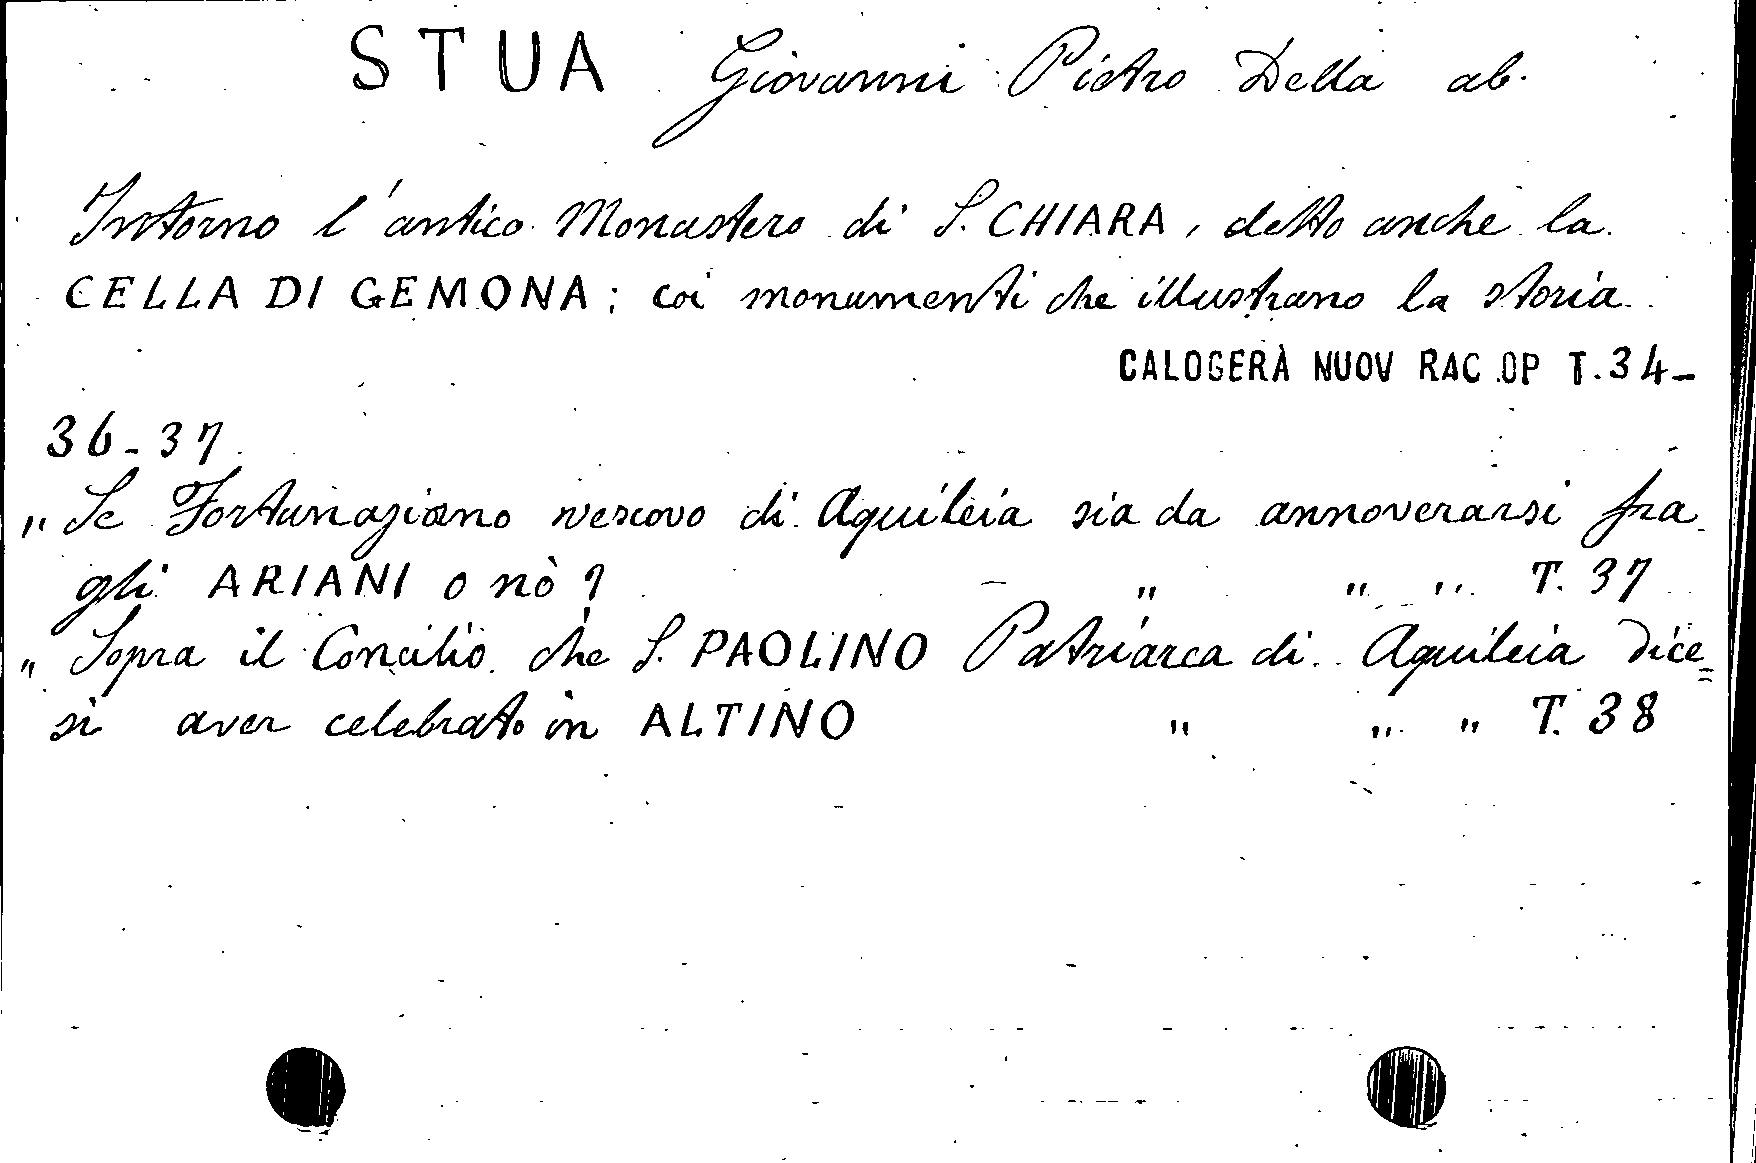 STUA Giovanni Pietro Della ab.
Intorno l'antico Monastero di S. CHIARA, detto anche la
CELLA DI GEMONA; coi monumenti che illustrano la storia
CALOGERÀ NUOV RAC OP T. 34-
36-37
" Se Fortunaziano vescovo di Aquileia sia da annoverarsi fra
gli ARIANI o nò? — " " " T. 37
" Sopra il Concilio che S. PAOLINO Patriarca di Aquileia dice=
si aver celebrato in ALTINO " " " T. 38